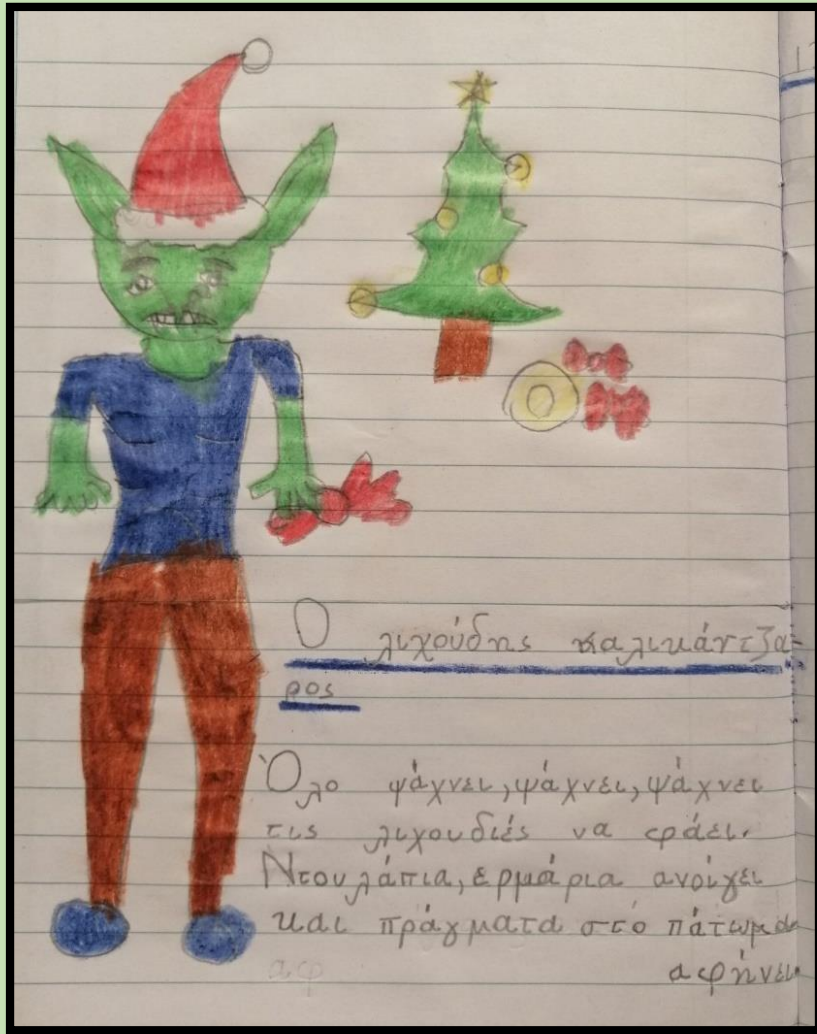 Ο λιχούδης καλικάντζα-
ρος
Όλο ψάχνει, ψάχνει, ψάχνει
τις λιχουδιές να φάει.
Ντουλάπια, ερμάρια ανοίγει
και πράγματα στο πάτωμα
αφήνει.